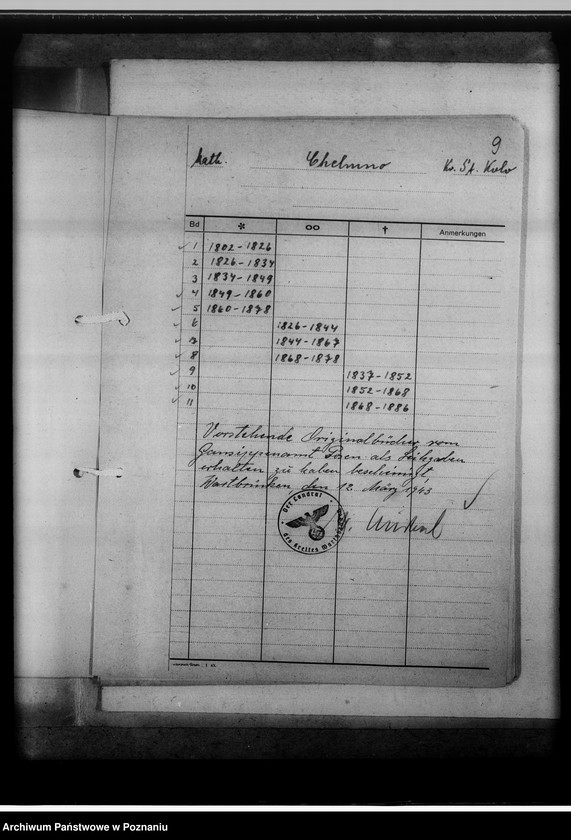 9
Kath. Chelmno Kr. St. Kolo
Bd * oo † Anmerkungen
1 1802-1826
2 1826-1834
3 1834-1849
4 1849-1860
5 1860-1878
6 1826-1844
7 1844-1867
8 1868-1878
9 1837-1852
10 1852-1868
11 1868-1886
Vorstehende Originalbücher vom
Gausippenamt Posen als Leihgaben
erhalten zu haben bescheinigt
Wartbrücken, den 12. März 1943
Der Landrat
des Kreises
Archiwum Państwowe w Poznaniu